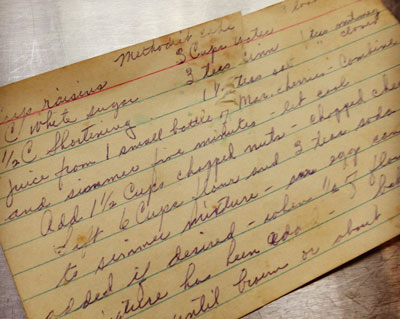 Methodist Cake
cups raisins 3 Cups water 1
C/ White sugar 3 teas cinn 1 teas nutmeg
1½ C Shortening 1½ teas salt " cloves
juice from 1 small bottle of Mar. cherries - Combine
and simmer five minutes - let cool
Add 1½ Cups chopped nuts - chopped cher
Sift 6 Cups flour and 3 teas soda
to simmer mixture - one egg can
added if desired - when ½ of flour
mixture has been add -
until brown or about